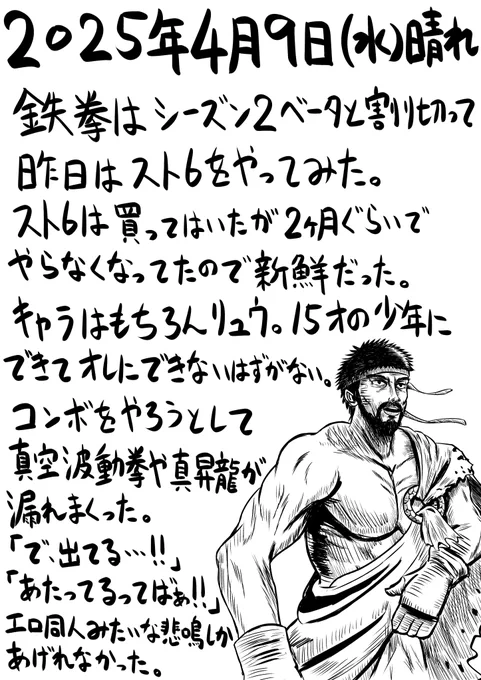 2025年4月9日(水)晴れ
鉄拳はシーズン2ベータと割り切って
昨日はスト6をやってみた。
スト6は買ってはいたが2ヶ月ぐらいで
やらなくなってたので新鮮だった。
キャラはもちろんリュウ。15才の少年に
できてオレにできないはずがない。
コンボをやろうとして
真空波動拳や真昇龍が
漏れまくった。
「で、出てる…!!」
「あたってるってばぁ!!」
エロ同人みたいな悲鳴しか
あげれなかった。